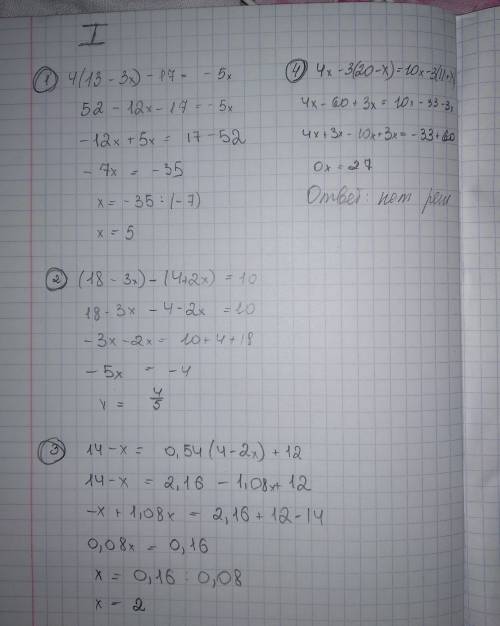 I
1 4(13 - 3x) - 17 = - 5x
52 - 12x - 17 = - 5x
- 12x + 5x = 17 - 52
- 7x = - 35
x = - 35 : (-7)
x = 5
2 (18 - 3x) - (4+2x) = 10
18 - 3x - 4 - 2x = 10
- 3x - 2x = 10 + 4 + 18
- 5x = - 4
x = 4/5
3 14 - x = 0,54 (4 - 2x) + 12
14 - x = 2,16 - 1,08x + 12
-x + 1,08x = 2,16 + 12 - 14
0,08x = 0,16
x = 0,16 : 0,08
x = 2
4 4x - 3(20 - x) = 10x - 3(11 + x)
4x - 60 + 3x = 10x - 33 - 3x
4x + 3x - 10x + 3x = - 33 + 60
0x = 27
Ответ: нет реш